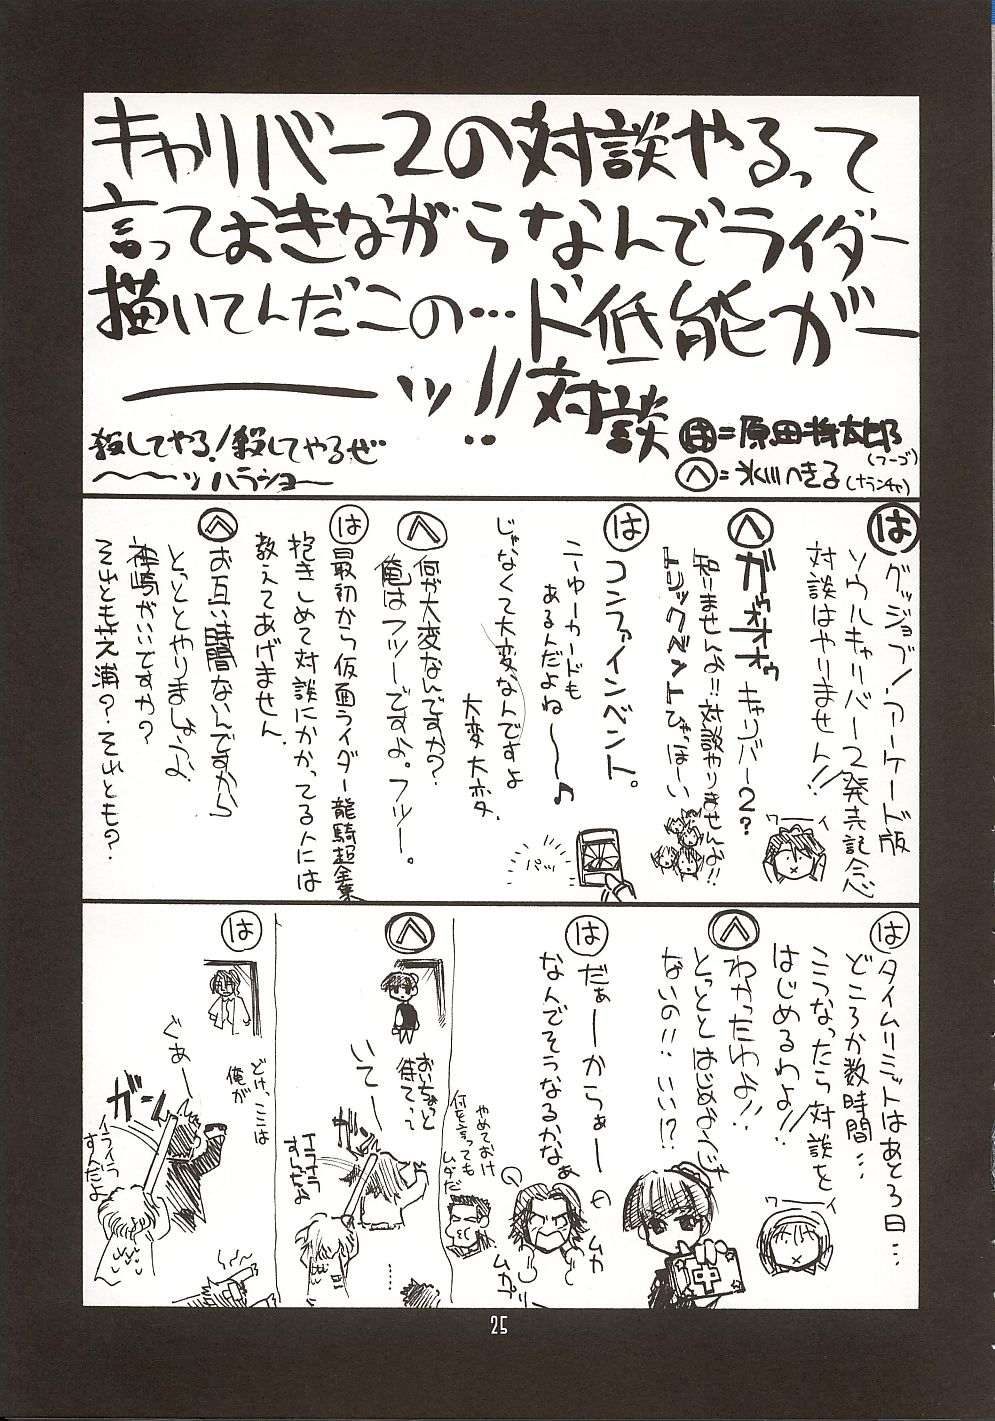 キャリバー2の対談やるって
言っておきながらなんでライダー
描いてんだこの…ド低能がー
――ッ!!対談
殺してやる!殺してやるぜ
〜〜〜ッハラショー
は=原田将太郎
(フーゴ)
へ=氷川へきる(ナランチャ)
は
グッジョブ!アーケード版
ソウルキャリバー2発売記念
対談はやりません!!
ワーイ
へ
ガゥォオオゥ キャリバー2?
知りませんよ!!対談やりませんよ!!
トリックベントひゃほーい
は
コンファインベント。
ニューカードも
あるんだよね〜〜♪
じゃなくて大変なんですよ
大変大変。
パッ
へ
何が大変なんですか?
俺はフツーですよ。フツー。
は
最初から仮面ライダー龍騎超全集
抱きしめて対談にかかってる人には
教えてあげません。
へ
お互い時間ないんですから
とっととやりましょうよ。
神崎がいいですか?
それとも芝浦?それとも?
は
タイムリミットはあと3日…
どころか数時間…
こうなったら対談を
はじめるわよ!!
ワーイ
へ
わかったわよ!!
とっととはじめようじゃ
ないの!!いい!?
中
は
だぁーからぁー
なんでそうなるかなぁ
ムカ
ムカ
やめておけ
何を言っても
ムダだ
へ
おいちょっと
待てって
いてー
ガン
イライラ
すんだよ
は
どけ、ここは
俺が
ぐぁー
ガン
イライラ
すんだよ
25